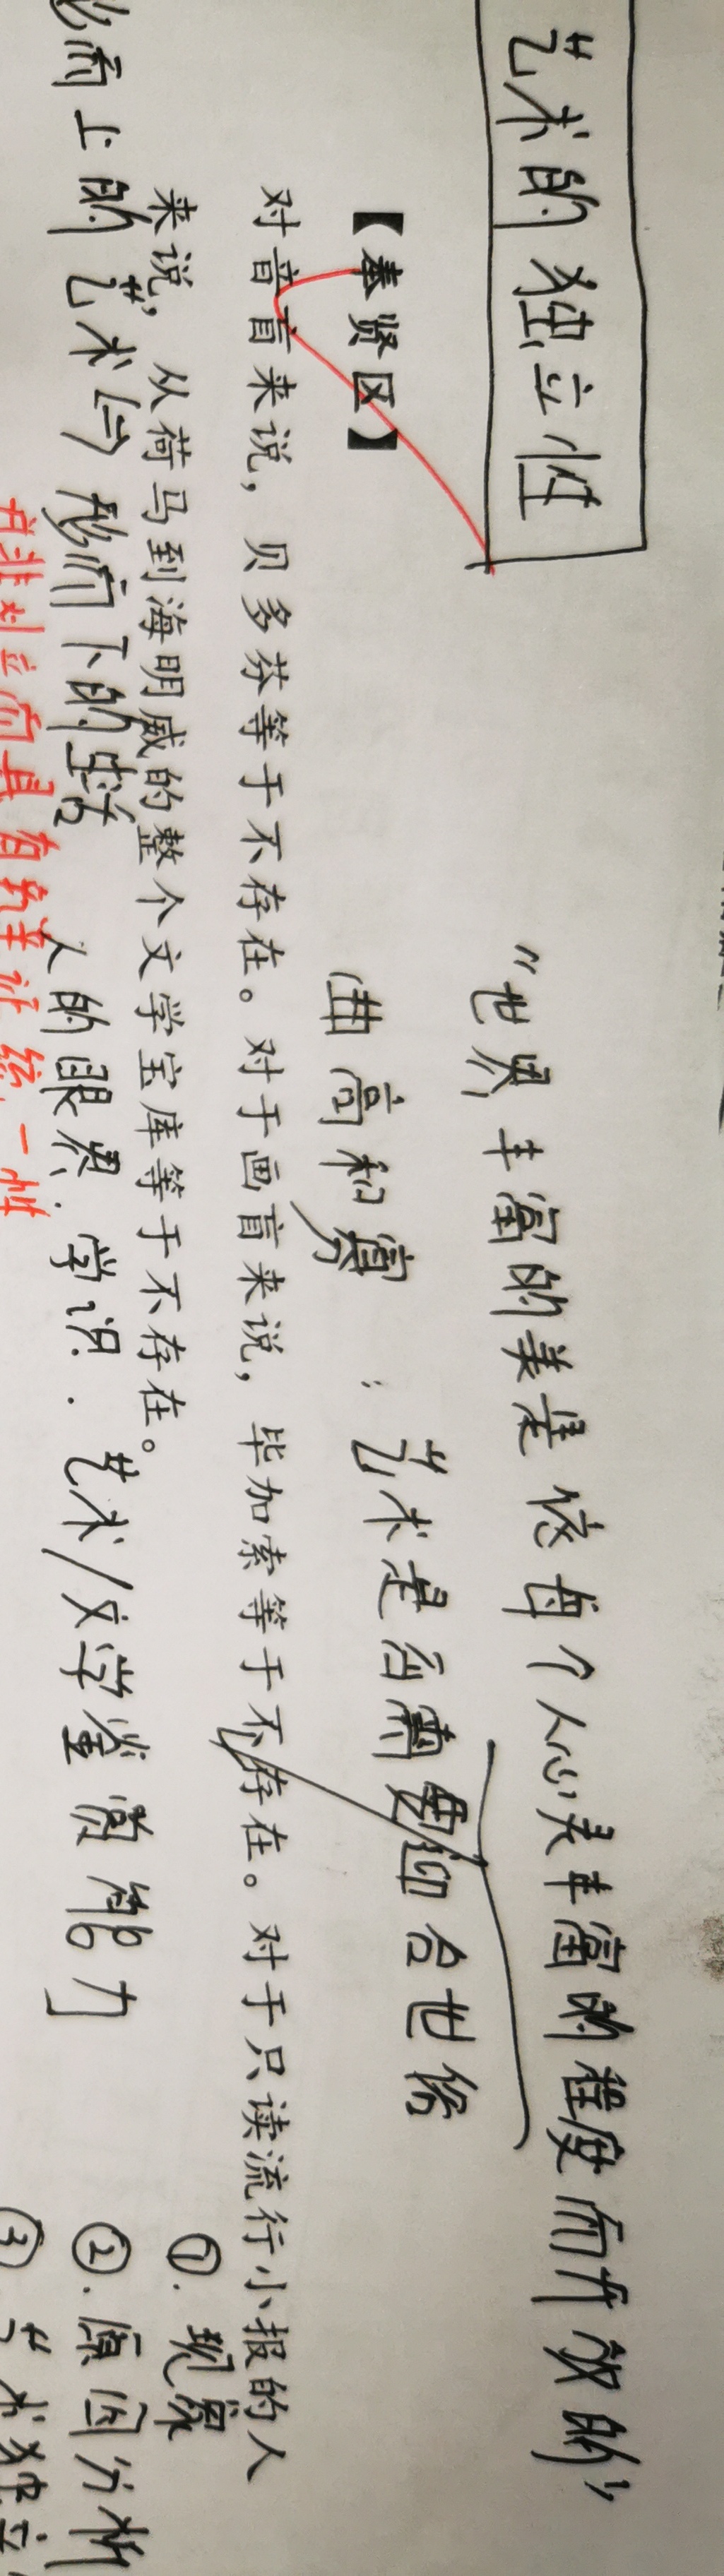 艺术的独立性
"世界丰富的美是依每个人心灵丰富的程度而开放的"
【奉贤区】
曲高和寡:艺术是否需要迎合世俗
对音盲来说，贝多芬等于不存在。对于画盲来说，毕加索等于不存在。对于只读流行小报的人
来说，从荷马到海明威的整个文学宝库等于不存在。
①. 现象
形而上的艺术与形而下的生活
人的眼界.学识.艺术/文学鉴赏能力
②. 原因分析
并非对立而具有辩证统一性
③ 艺术独立